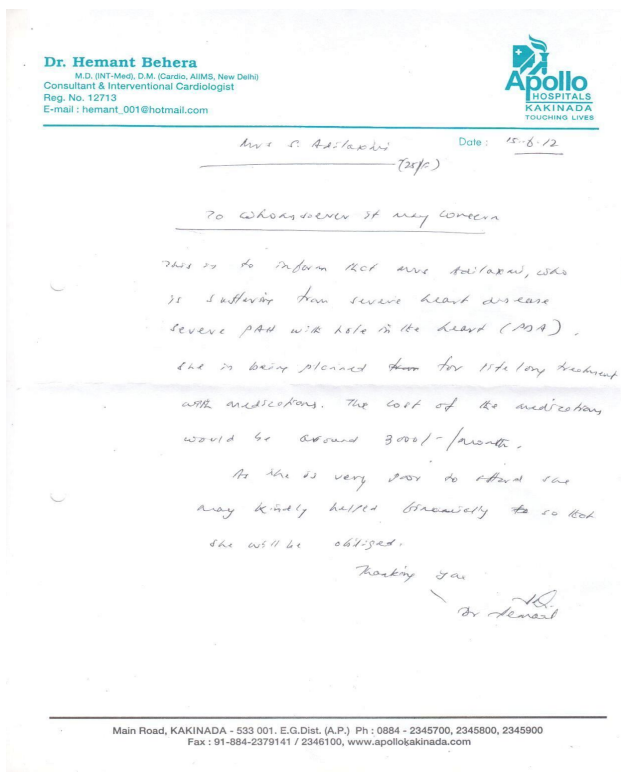 Dr. Hemant Behera
M.D. (INT-Med), D.M. (Cardio, AIIMS, New Delhi)
Consultant & Interventional Cardiologist
Reg. No. 12713
E-mail : hemant_001@hotmail.com
Apollo
HOSPITALS
KAKINADA
TOUCHING LIVES
Mrs S. Adilaxmi
Date : 15-6-12
(25/F)
To whomsoever it may concern
This is to inform that Mrs Adilaxmi, who
is suffering from severe heart disease
severe PAH with hole in the heart
She is being planned for life long treatment
with medications. The cost of the medications
would be around 3000/-/month.
As she is very poor to afford she
may kindly helped financially so that
she will be obliged.
Thanking you
Dr Hemant
Main Road, KAKINADA - 533 001. E.G.Dist. (A.P.) Ph : 0884 - 2345700, 2345800, 2345900
Fax : 91-884-2379141 / 2346100, www.apollokakinada.com